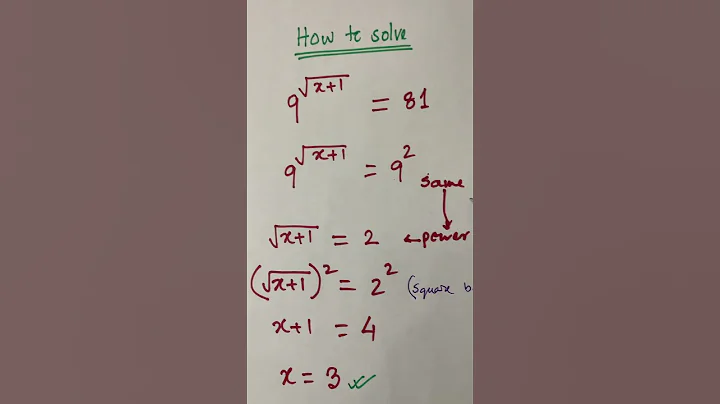 How to solve
9^√(x+1) = 81
9^√(x+1) = 9^2
same
√(x+1) = 2 ← power
(√(x+1))^2 = 2^2 (square b
x+1 = 4
x = 3 ✓